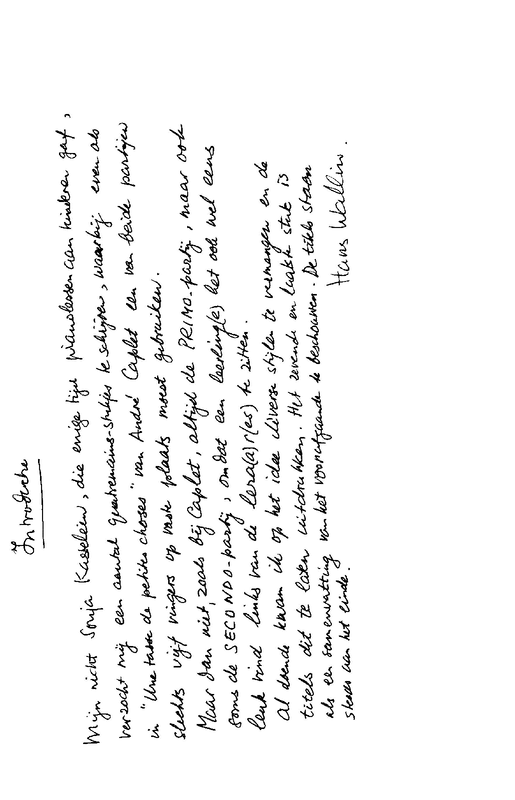 Introductie
Mijn nicht Sonja Kasselein, die enige tijd pianolessen aan kinderen gaf,
verzocht mij een aantal quatremains-stukjes te schrijven, waarbij even als
in "Une tasse de petites choses" van André Caplet een van beide partijen
slechts vijf vingers op vaste plaats moest gebruiken.
Maar dan niet, zoals bij Caplet, altijd de PRIMO-partij, maar ook
soms de SECONDO-partij, omdat een leerling(e) het ook wel eens
leuk vind links van de lera(a)r(es) te zitten.
Al doende kwam ik op het idee diverse stijlen te vermengen en de
titels dit te laten uitdrukken. Het zevende en laatste stuk is
als een samenvatting van het voorafgaande te beschouwen. De titels staan
steeds aan het einde.
Hans Wallin.